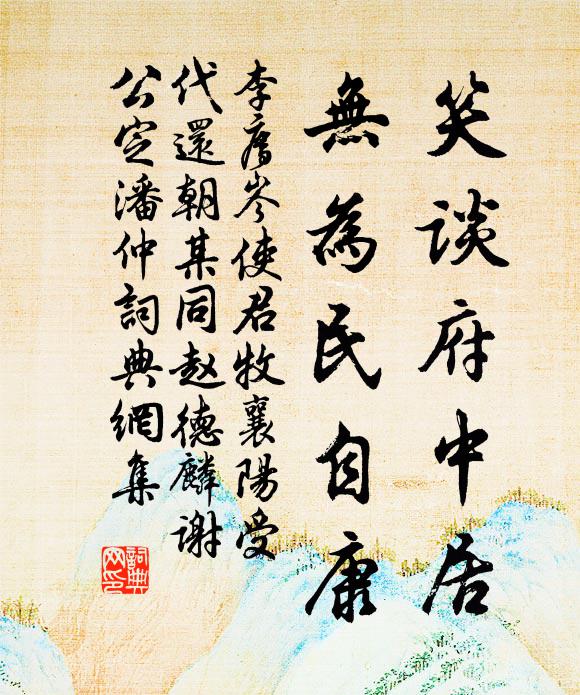 笑談府中居
無為民自康
李膺岑使君牧襄陽受
代還朝某同趙德麟謝
公定潘仲詞典網集
詞典網印